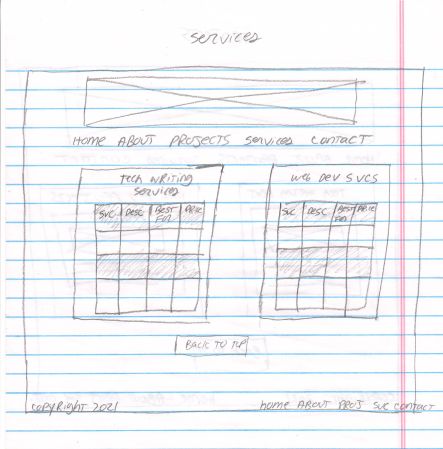 Services
Home ABOUT PROJECTS Services Contact
Tech Writing
Services
SVC DESC BEST FOR PRICE
Web Dev SVCS
SVC DESC BEST FOR PRICE
BACK TO TOP
Copyright 2021
home ABOUT PROJ SVC contact